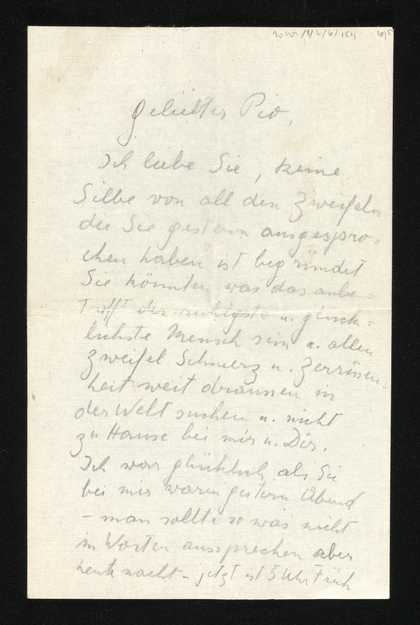 Geliebter Pio,
Ich liebe Sie, keine
Silbe von all den Zweifeln
die Sie gestern ausgespro-
chen haben ist begründet
Sie könnten was das anbe-
trifft der ruhigste u. glück-
lichste Mensch sein u. allen
Zweifel Schmerz u. Zerrissen-
heit weit draussen in
der Welt suchen u. nicht
zu Hause bei mir u. Dir.
Ich war glücklich als Sie
bei mir waren gestern Abend
– man sollte so was nicht
in Worten aussprechen aber
heute nacht – jetzt ist 5 Uhr früh